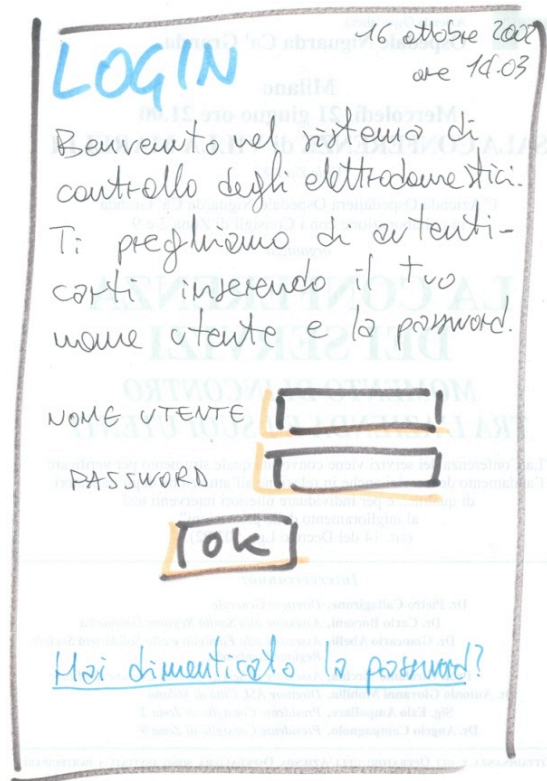 16 ottobre 2002
ore
LOGIN
Benvenuto nel sistema di
controllo degli elettrodomestici.
Ti preghiamo di autenti-
carti inserendo il tuo
nome utente e la password.
NOME UTENTE
PASSWORD
OK
Hai dimenticato la password?